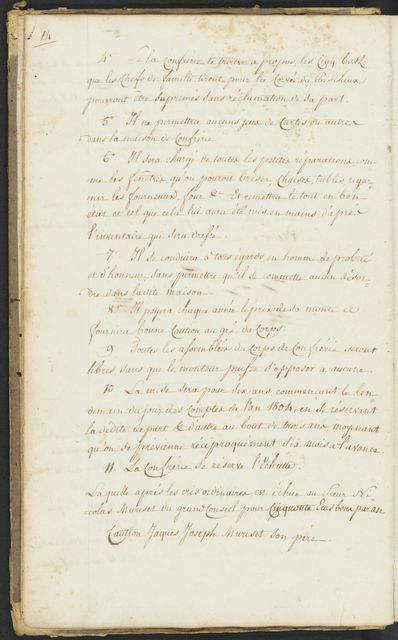 14
4° Si la Confrerie le trouve a propos, les Cinq batz
que les Chefs de famille tirent pour les Corvé du
pourront être suprimés sans réclamation de sa part.
5° Il ne permettra aucuns jeux de Cartes ou autres
dans la maison de Confrerie.
6° Il sera chargé de toutes les petites réparations, com-
me les fenêtres, qu'on pouroit briser, Chaises, tables, regar-
nir les fourneaux, four &a Et remettra le tout en bon
etat et tel que cela lui aura été mis en mains d'apres
l'inventaire que sera dressé.
7° Il se conduira à tous égards en homme de probité
et d'honneur, sans permettre qu'il se commette aucun désor-
dre dans ladite maison.
8° Il payra chaque année le prix de sa monte et
fournira bonne Caution au gré du Corps.
9 Toutes les assemblées du Corps de Confrérie seront
libres, sans que le monteur puisse s'opposer a aucune.
10 La mise sera pour dix ans, commencant le len
demain du jour des Comptes de l'an 1804, en se reservant
la dédite de part & d'autre au bout de trois ans moyenant
qu'on se previenne réciproquement six mois a l'avance.
11. La Confrerie se réserve l'Echutte.
Laquelle après les cris ordinaires est échue au Sieur Ni-
colas Muriset du grand Conseil pour Cinquante Ecus bons par an
Caution Jaques Joseph Muriset son père